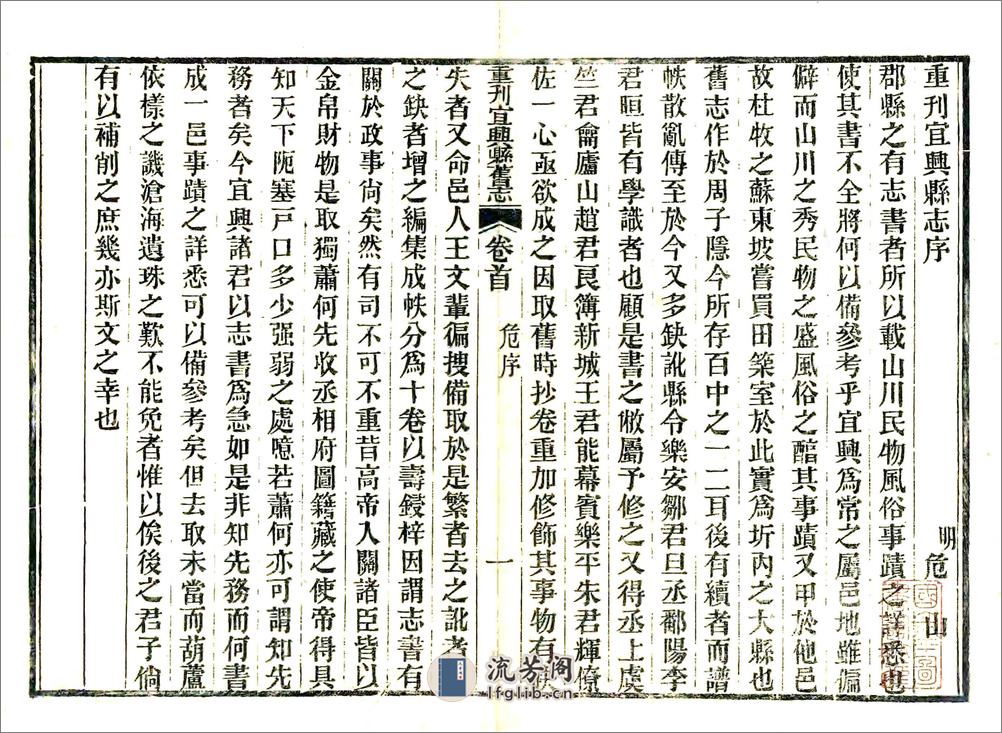 重刊宜興縣志序
明 危 山
郡縣之有志書者所以載山川民物風俗事蹟之詳悉也
使其書不全將何以備參考乎宜興爲常之屬邑地雖偏
僻而山川之秀民物之盛風俗之醕其事蹟又甲於他邑
故杜牧之蘇東坡嘗買田築室於此實爲圻內之大縣也
舊志作於周子隱今所存百中之一二耳後有續者而譜
帙散亂傳至於今又多缺訛縣令樂安鄒君旦丞鄱陽李
君晅皆有學識者也顧是書之敝屬予修之又得丞上虞
竺君侖廬山趙君艮簿新城王君能幕賓樂平朱君輝僚
佐一心亟欲成之因取舊時抄卷重加修飾其事物有
重刊宜興縣舊志 卷首 危序 一
失者又命邑人王文輩徧搜備取於是繁者去之訛者
之缺者增之編集成帙分爲十卷以壽鋟梓因謂志書有
關於政事尙矣然有司不可不重昔高帝入關諸臣皆以
金帛財物是取獨蕭何先收丞相府圖籍藏之使帝得具
知天下阨塞戸口多少强弱之處噫若蕭何亦可謂知先
務者矣今宜興諸君以志書爲急如是非知先務而何書
成一邑事蹟之詳悉可以備參考矣但去取未當而葫蘆
依樣之譏滄海遺珠之歎不能免者惟以俟後之君子倘
有以補削之庶幾亦斯文之幸也
流芳阁
lfglib.cn